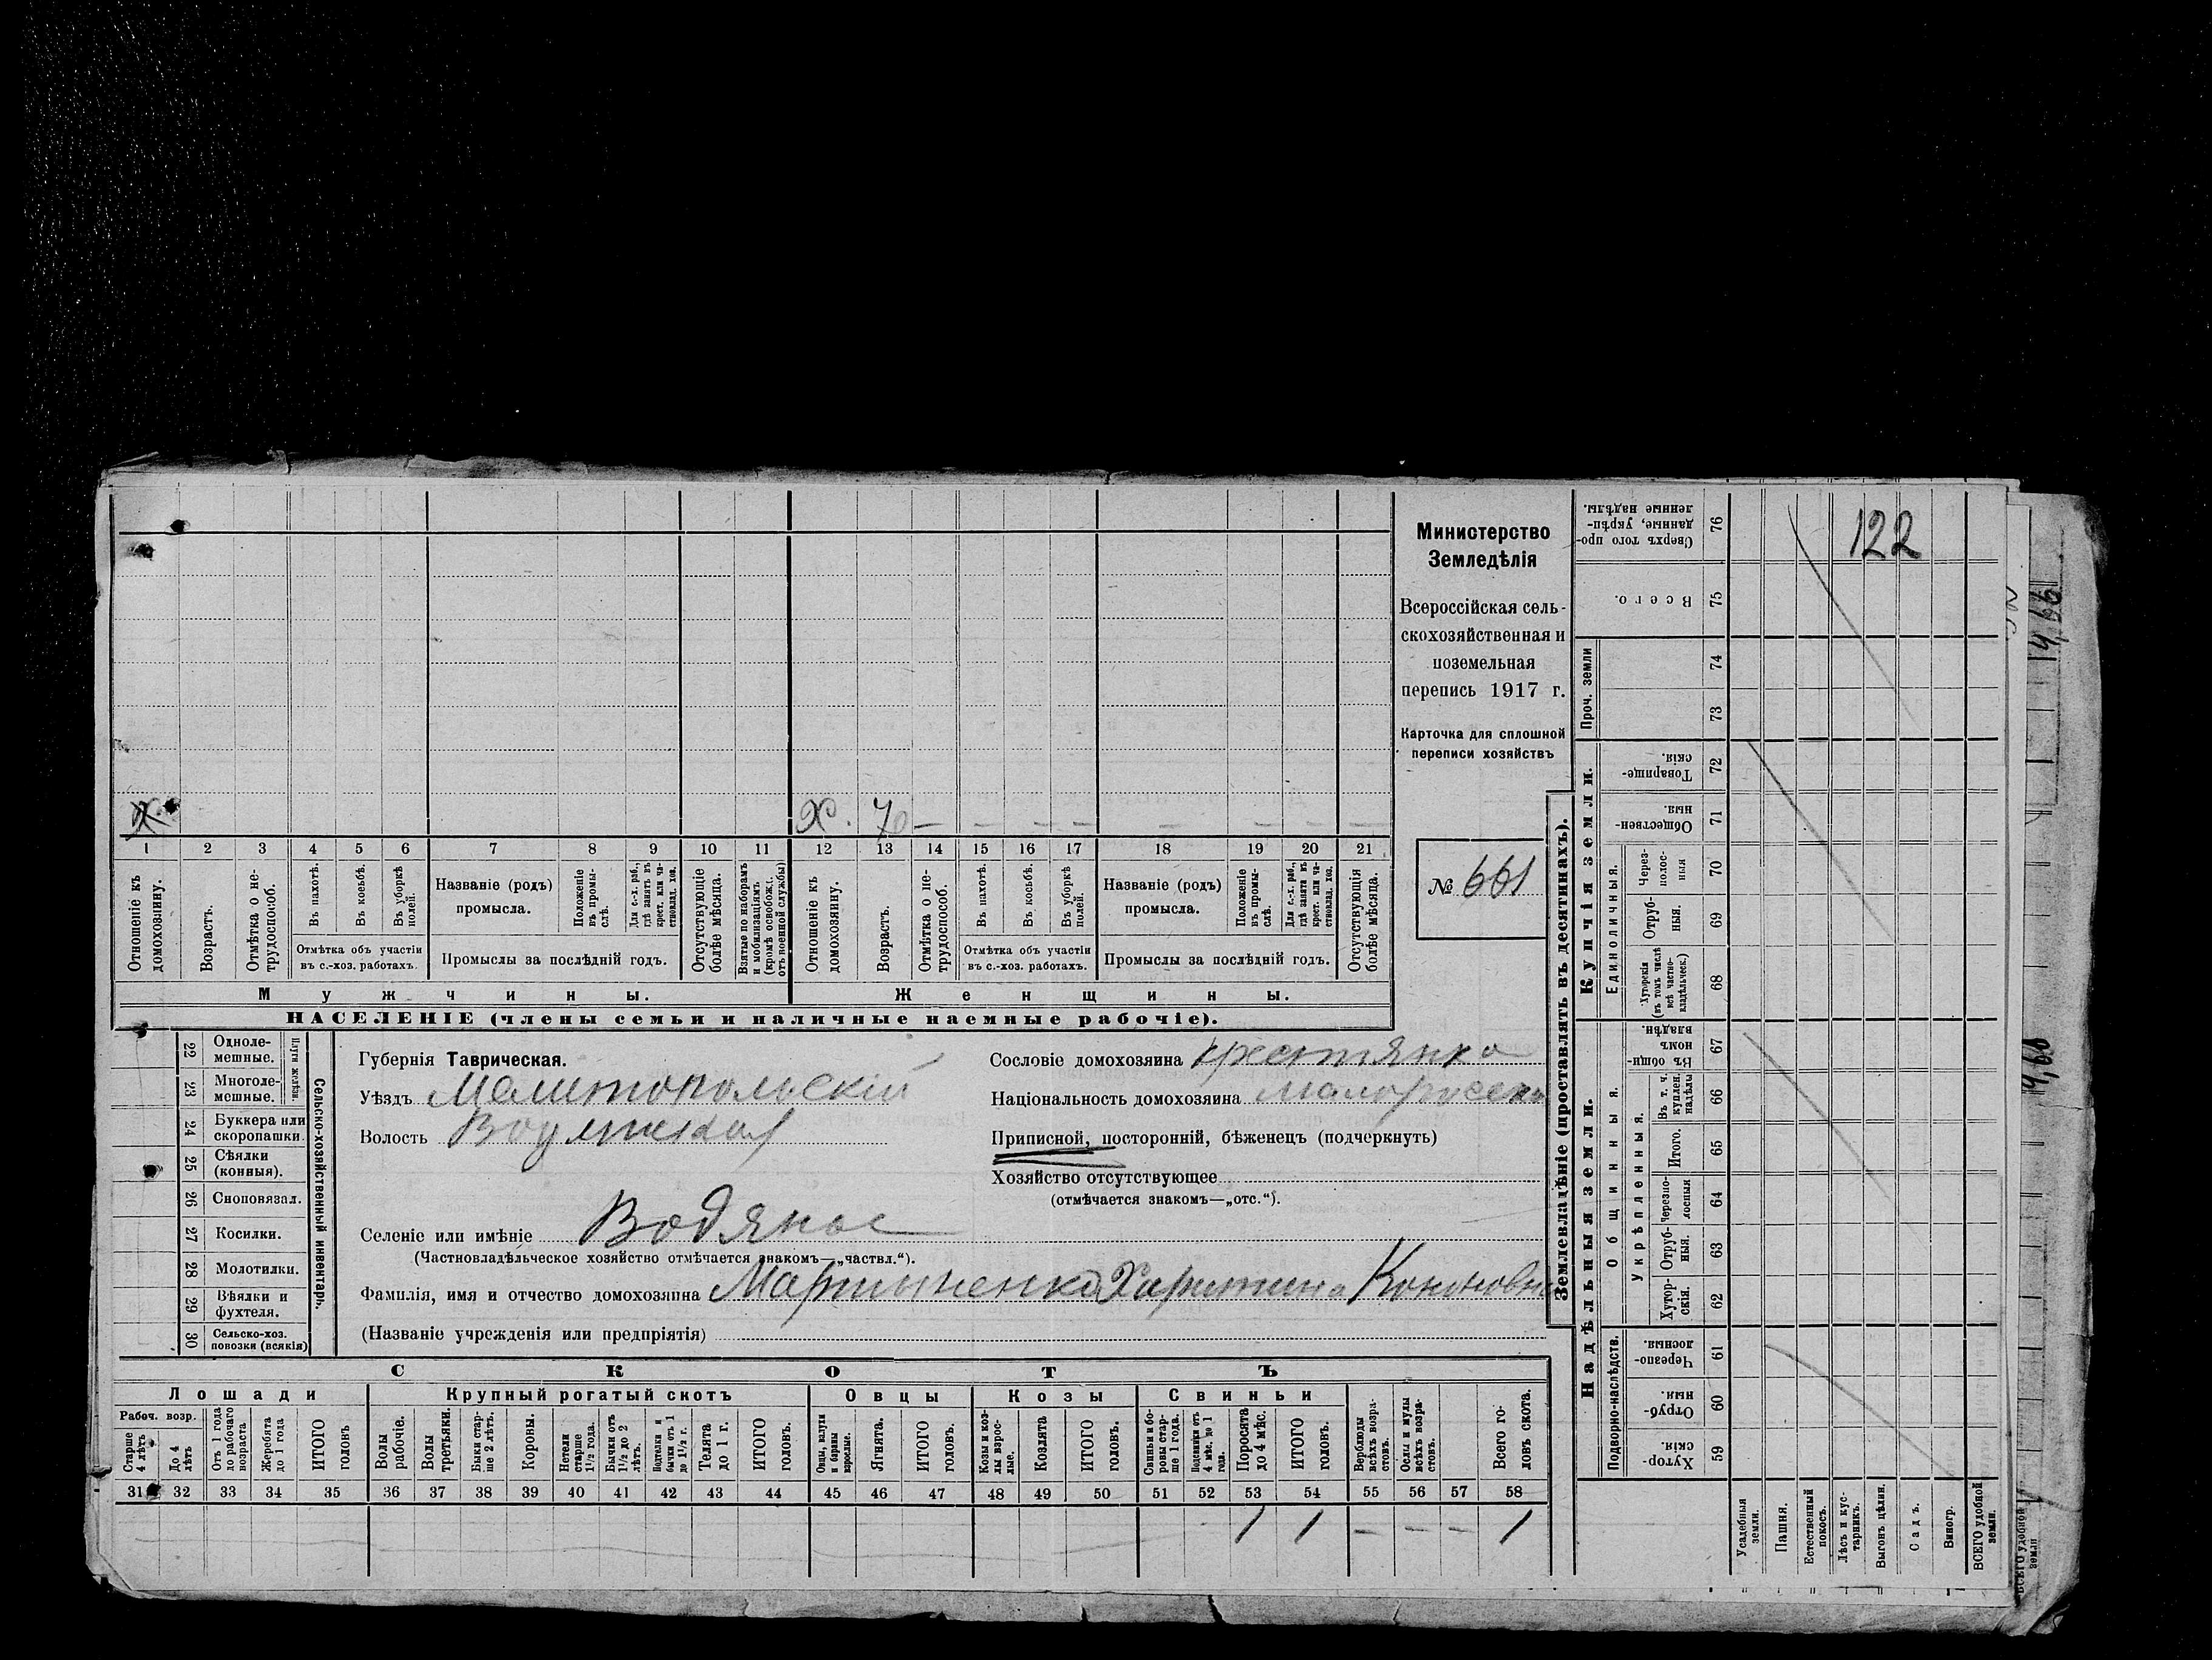 Министерство
Земледѣлія
Всероссійская сель-
скохозяйственная и
поземельная
перепись 1917 г.
Карточка для сплошной
переписи хозяйствъ
№ 661
х
х. 70 — — — — — — — —
1 2 3 4 5 6 7 8 9 10 11 12 13 14 15 16 17 18 19 20 21
Отношеніе къ домохозяину.
Возрастъ.
Отмѣтка о не-трудоспособ.
Въ пахотѣ.
Въ косьбѣ.
Въ уборкѣ полей.
Отмѣтка объ участіи
въ с.-хоз. работахъ.
Названіе (родъ)
промысла.
Положеніе въ промы-слѣ.
Для с.-х. раб., гдѣ занятъ въ крест. или ча-стновлад. хоз.
Промыслы за послѣдній годъ.
Отсутствующіе болѣе мѣсяца.
Взятые по наборамъ и мобилизаціямъ (кромѣ освобож. отъ военной службы)
Отношеніе къ домохозяину.
Возрастъ.
Отмѣтка о не-трудоспособ.
Въ пахотѣ.
Въ косьбѣ.
Въ уборкѣ полей.
Отмѣтка объ участіи
въ с.-хоз. работахъ.
Названіе (родъ)
промысла.
Положеніе въ промы-слѣ.
Для с.-х. раб., гдѣ заняти въ крест. или ча-стновлад. хоз.
Промыслы за послѣдній годъ.
Отсутствующія болѣе мѣсяца.
Мужчины.
Женщины.
НАСЕЛЕНІЕ (члены семьи и наличные наемные рабочіе).
Сельско-хозяйственный инвентарь.
Плуги желѣзн.
22 Одноле-мешные.
23 Многоле-мешные.
24 Буккера или скоропашки.
25 Сѣялки (конныя).
26 Сноповязал.
27 Косилки.
28 Молотилки.
29 Вѣялки и фухтеля.
30 Сельско-хоз. повозки (всякія)
Губернія Таврическая.
Уѣздъ Мелитопольскій
Волость
Селеніе или имѣніе Водяное
(Частновладѣльческое хозяйство отмѣчается знакомъ—„частвл.“).
Фамилія, имя и отчество домохозяина Мартыненко Харитина Кононовна
(Названіе учрежденія или предпріятія)
Сословіе домохозяина крестянка
Національность домохозяина малоросска
Приписной, посторонній, бѣженецъ (подчеркнуть)
Хозяйство отсутствующее
(отмѣчается знакомъ—„отс.“).
СКОТЪ
Лошади Крупный рогатый скотъ Овцы Козы Свиньи
Рабоч. возр.
Старше 4 лѣтъ
До 4 лѣтъ
Отъ 1 года до рабочаго возраста
Жеребята до 1 года
ИТОГО головъ
Волы рабочіе.
Волы третьяки.
Быки стар-ше 2 лѣтъ.
Коровы.
Нетели старше 1½ года.
Бычки отъ 1½ до 2 лѣтъ.
Подтелки и бычки отъ 1 до 1½ г.
Телята до 1 г.
ИТОГО головъ.
Овцы, валухи и бараны взрослые.
Ягнята.
ИТОГО головъ.
Козы и коз-лы взрос-лые.
Козлята
ИТОГО головъ.
Свиньи и бо-ровы стар-ше 1 года.
Подсвинки отъ 4 мѣс. до 1 года.
Поросята до 4 мѣс.
ИТОГО головъ.
Верблюды всѣхъ возра-стовъ.
Ослы и мулы всѣхъ возра-стовъ.
Всего го-ловъ скота.
31 32 33 34 35 36 37 38 39 40 41 42 43 44 45 46 47 48 49 50 51 52 53 54 55 56 57 58
1 1 — — — 1
Землевладѣніе (проставлять въ десятинахъ).
Купчія земли.
Надѣльныя земли.
Сверхъ того про-данные, укрѣп-ленные надѣлы. 76
122
Всего. 75
Проч. земли
74
73
Товарище-скія. 72
Обществен-ныя. 71
Единоличныя.
Через-полос-ныя 70
Отруб-ныя. 69
Хуторскія (въ томъ числѣ всѣ частно-владѣльческ.) 68
Общинныя.
Въ общи-номъ владѣн. 67
Укрѣпленныя.
Въ т. ч. куплен. надѣлы 66
Итого. 65
Черезпо-лосныя 64
Отруб-ныя. 63
Хутор-скія. 62
Подворно-наслѣдств.
Черезпо-лосныя. 61
Отруб-ныя. 60
Хутор-скія. 59
Усадебныя земли.
Пашня.
Естественный покосъ.
Лѣсъ и кус-тарникъ.
Выгонъ цѣлин.
Садъ.
Виногр.
ВСЕГО удобной земли.
ВСЕГО удобной земли